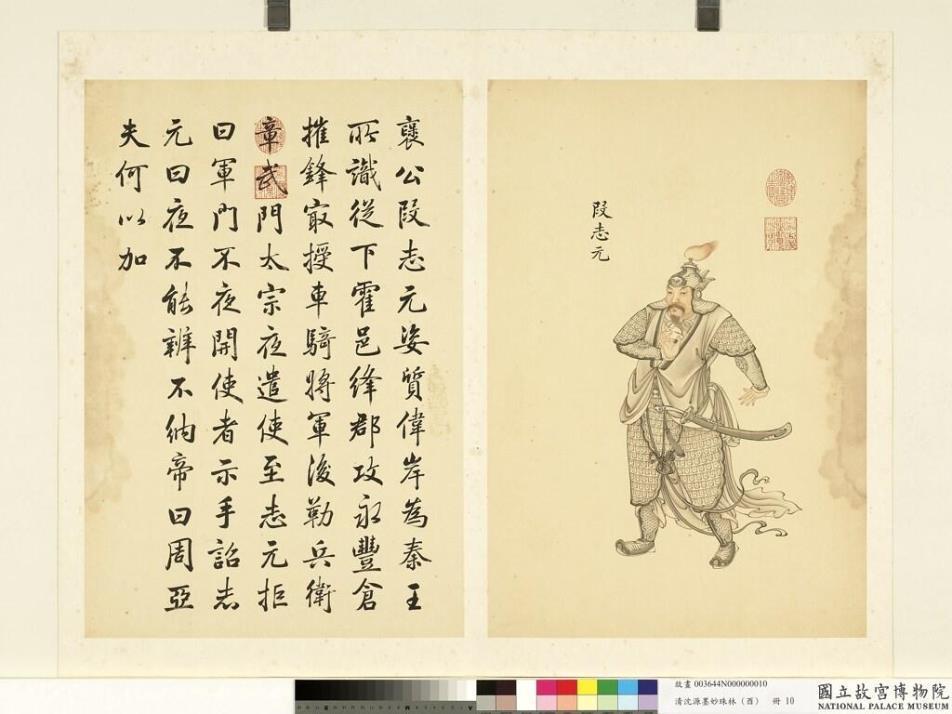 段志元
襄公段志元姿質偉岸為秦王
所識從下霍邑絳郡攻永豐倉
摧鋒㝡授車騎將軍後勒兵衛
章武門太宗夜遣使至志元拒
曰軍門不夜開使者示手詔志
元曰夜不能辨不納帝曰周亞
夫何以加
故畫 003644N000000010
清沈源墨妙珠林（酉） 冊 10
國立故宮博物院
NATIONAL PALACE MUSEUM